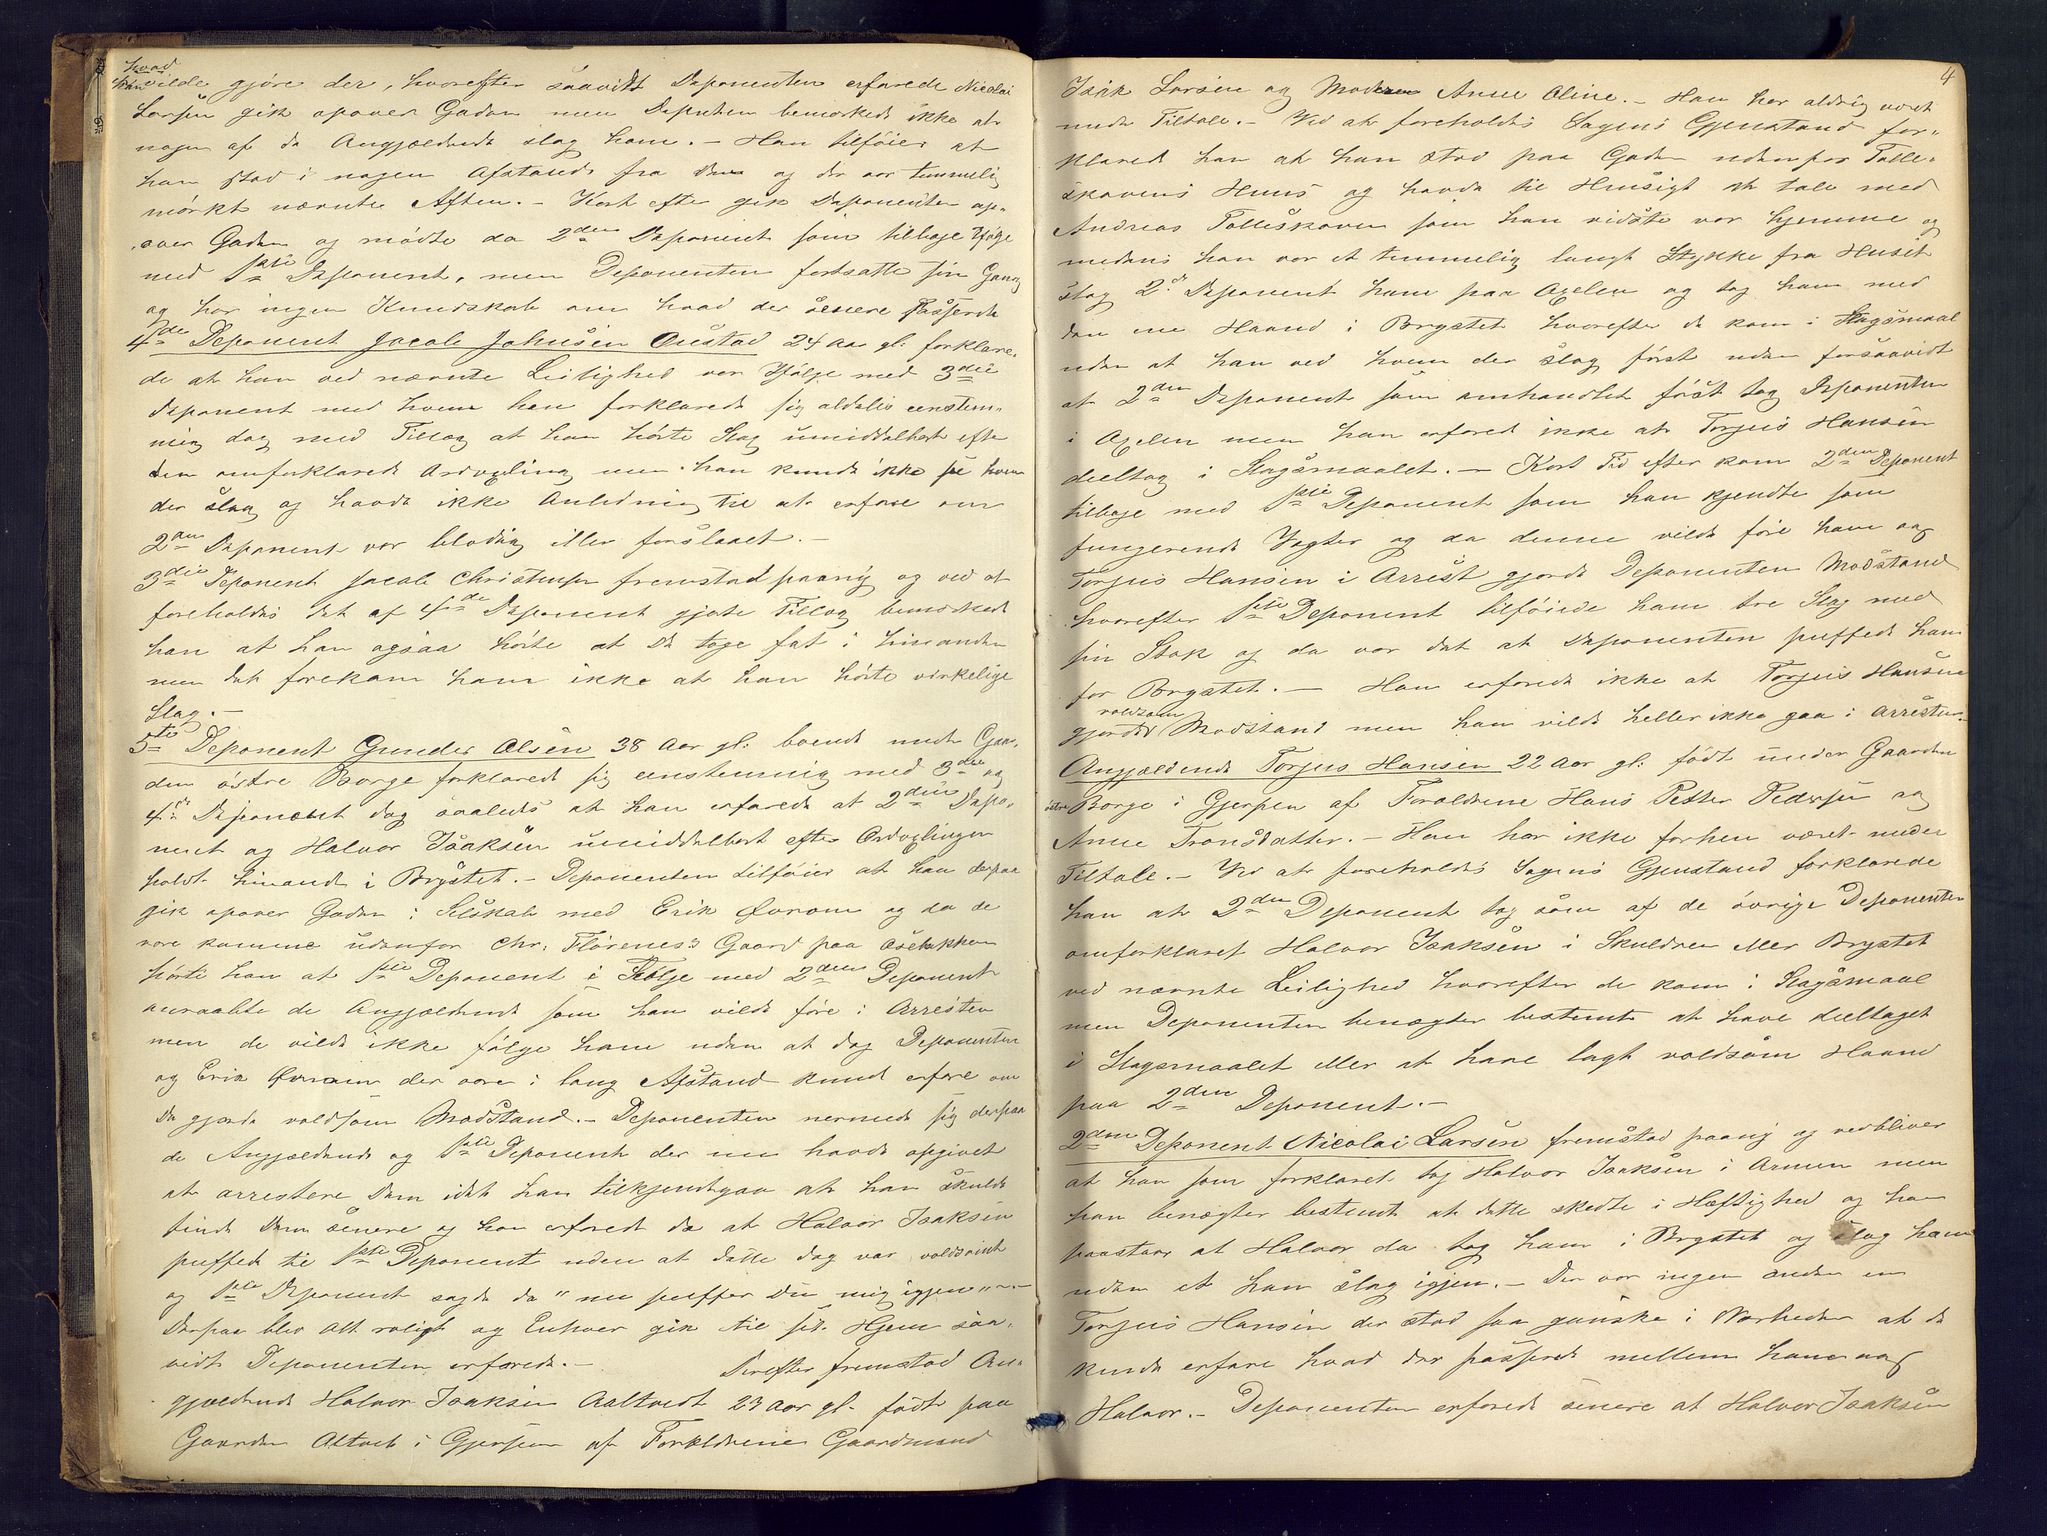 hvad
han vilde gjøre der, hvorefter saavidt Deponenten erfarede Nicolai
Larsen gik opover Gaden men Deponenten bemærkede ikke at
nogen af de Angjældende slog ham. - Han tilføier at
han stod i nogen Afstand fra dem og der var temmelig
mørkt nævnte Aften. - Kort efter gik Deponenten op-
over Gaden og mødte da 2den Deponent som tilbage ifølge
med 1ste Deponent, men Deponenten fortsatte sin Gang
og har ingen Kundskab om hvad der senere passerede
4de Deponent Jacob Johnsen Ouestad 24 Aar gl: forklare-
de at han ved nævnte Leilighed var ifølge med 3die
Deponent med hvem han forklarede sig aldeles eenstem-
mig dog med Tillæg at han hørte Slag umiddelbart efter
den omforklarede Ordvexling men han kunde ikke se hvem
der slog og havde ikke Anledning til at erfare om
2den Deponent var blodig eller forslaaet. -
3die Deponent Jacob Christensen fremstod paany og ved at
foreholdes det af 4de Deponent gjorte Tillæg bemærkede
han at han ogsaa hørte at de toge fat i hinanden
men det forekom ham ikke at han hørte virkelige
Slag. -
5te Deponent Gunder Olsen 38 Aar gl: boende under Gaar-
den østre Borge forklarede sig eenstemmig med 3die og
4de Deponent dog saaledes at han erfarede at 2den Depo-
nent og Halvor Isaksen umiddelbart efter Ordvexlingen
holdt hinanden i Brystet. - Deponenten tilføier at han derpaa
gik opover Gaden i Selskab med Erik Øvrom og da de
vare komne udenfor Chr: Florenes's Gaard paa
hørte han at 1ste Deponent i Følge med 2den Deponent
anraabte de Angjældende som han vilde føre i Arresten
men de vilde ikke følge ham uden at dog Deponenten
og Erik Øvrom der vare i lang Afstand kunde erfare om
de gjorde voldsom Modstand. - Deponenten nermede sig derpaa
de Angjældende og 1ste Deponent der nu havde opgivet
at arrestere dem idet han tilkjendegav at han skulde
finde dem senere og han erfarede da at Halvor Isaksen
puffede til 1ste Deponent uden at dette dog var voldsomt
og 1ste Deponent sagde da "nu puffer Du mig igjen" -
Derpaa blev Alt roligt og Enhver gik til sit Hjem saa-
vidt Deponenten erfarede. - Derefter fremstod An-
gjældende Halvor Isaksen Aaltvedt 23 Aar gl. født paa
Gaarden Altvet i Gjerpen af Forældrene Gaardmand
4
Isak Larsen og Moderen Anne Oline. - Han har aldrig været
under Tiltale. - Ved at foreholdes Sagens Gjenstand for-
klarede han at han stod paa Gaden udenfor Tolle-
skovens Huus og havde til Hensigt at tale med
Andreas Tolleskoven som han vidste var hjemme og
medens han var et temmelig langt Stykke fra Huset
slog 2de Deponent ham paa Axelen og tog ham med
den ene Haand i Brystet hvorefter de kom i Slagsmaal
uden at han ved hvem der slog først uden forsaavidt
at 2den Deponent som omhandlet først tog Deponenten
i Axelen men han erfarede ikke at Torjus Hansen
deeltog i Slagsmaalet. - Kort Tid efter kom 2den Deponent
tilbage med 1ste Deponent som han kjendte som
fungerende Vægter og da denne vilde føre ham og
Torjus Hansen i Arrest gjorde Deponenten Modstand
hvorefter 1ste Deponent tilføiede ham tre Slag med
sin Stok og da var det at Deponenten puffede ham
for Brystet. - Han erfarede ikke at Torjus Hansen
voldsom
gjorde Modstand men han vilde heller ikke gaa i Arresten.
Angjældende Torjus Hansen 22 Aar gl: født under Gaarden
østre Borge i Gjerpen af Forældrene Hans Petter Pedersen og
Anne Tronsdatter. - Han har ikke forhen været under
Tiltale. - Ved at foreholdes Sagens Gjenstand forklarede
han at 2den Deponent tog som af de øvrige Deponenter
omforklaret Halvor Isaksen i Skuldren eller Brystet
ved nævnte Leilighed hvorefter de kom i Slagsmaal
men Deponenten benægter bestemt at have deeltaget
i Slagsmaalet eller at have lagt voldsom Haand
paa 2den Deponent. -
2den Deponent Nicolai Larsen fremstod paany og vedbliver
at han som forklaret tog Halvor Isaksen i Armen men
han benægter bestemt at dette skedte i Hæftighed og han
paastaar at Halvor da tog ham i Brystet og slog ham
uden at han slog igjen. - Der var ingen anden end
Torjus Hansen der stod saa ganske i Nærheden at de
kunde erfare hvad der passerede mellem ham og
Halvor. - Deponenten erfarede senere at Halvor Isaksen